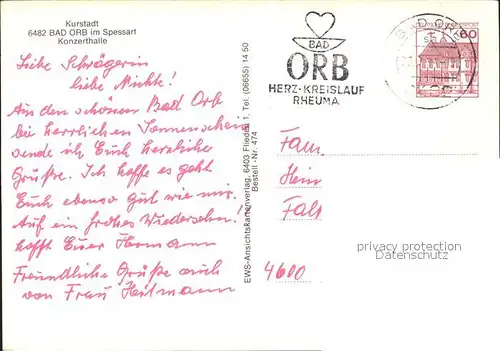 Kurstadt
6482 BAD ORB im Spessart
Konzerthalle
Liebe Schwägerin
liebe Nichte!
Aus den schönen Bad Orb
bei herrlichen Sonnenschein
sende ich Euch herzliche
Grüße. Ich hoffe es geht
Euch ebenso gut wie mir.
Auf ein frohes Wiedersehn!
hofft Euer Hermann
Freundliche Grüße auch
von Frau Heitmann
EWS-Ansichtskartenverlag, 6403 Flieden 1, Tel. (06655) 14 50
Bestell-Nr. 474
BAD
ORB
HERZ-KREISLAUF
RHEUMA
BAD OR
60
Fam
Hein
Falt
4600
privacy protection
Datenschutz